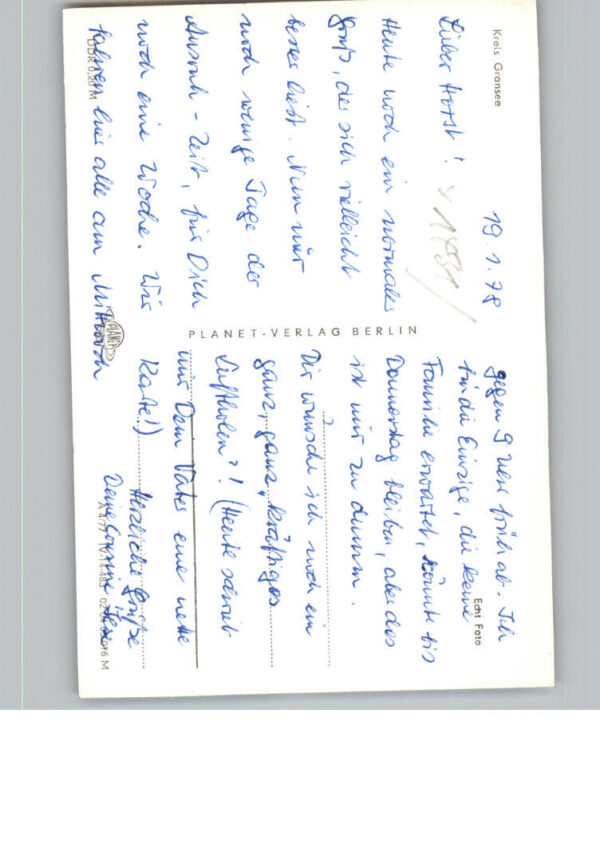 Kreis Gransee
19.1.78
Lieber Horst!
Heute noch ein normaler
Gruß, der sich vielleicht
besser liest. Nun nur
noch wenige Tage der
Ausruh-Zeit, für Dich
noch eine Woche. Wir
fahren hier alle am Mittwoch
DDR 0,20 M
PLANET-VERLAG BERLIN
PLANET
Echt Foto
gegen 9 Uhr früh ab. Ich
bin die Einzige, die keine
Familie erwartet, könnte bis
Donnerstag bleiben, aber das
ist mir zu dumm.
Dir wünsche ich noch ein
ganz, ganz kräftiges
Luftholen"! (Heute schrieb
mir Dein Vater eine nette
Karte!)
Herzliche Grüße
Deine
A 4/77 IV-14-483